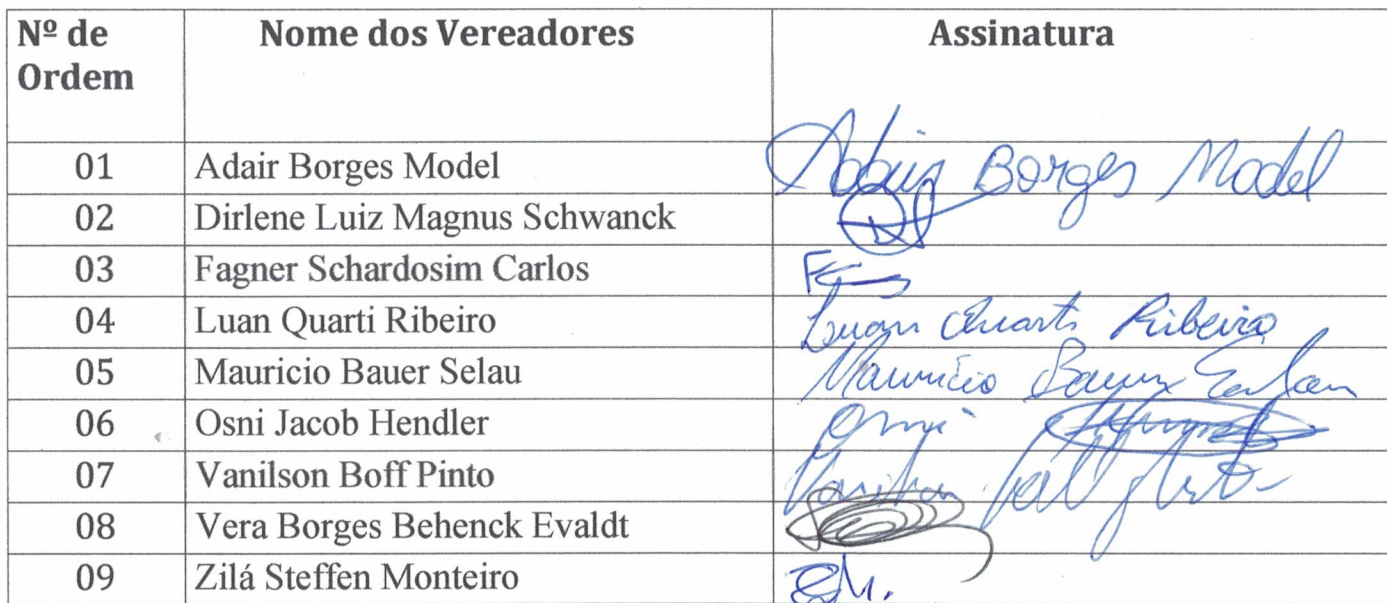 Nº de Ordem Nome dos Vereadores Assinatura
01 Adair Borges Model Adair Borges Model
02 Dirlene Luiz Magnus Schwanck
03 Fagner Schardosim Carlos
04 Luan Quarti Ribeiro Luan Quarti Ribeiro
05 Mauricio Bauer Selau Mauricio Bauer Selau
06 Osni Jacob Hendler Osni
07 Vanilson Boff Pinto Vanilson Boff Pinto
08 Vera Borges Behenck Evaldt
09 Zilá Steffen Monteiro ZM.